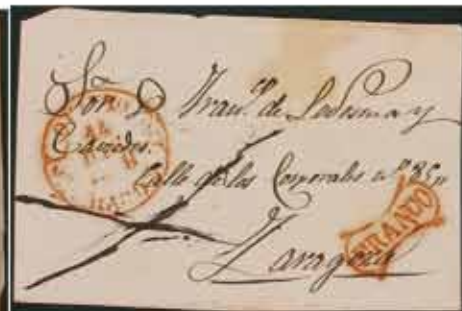 Sor. D. Franco. de Ledesma y
Calle de los Corporales no. 85
Zaragoza
FRANCO